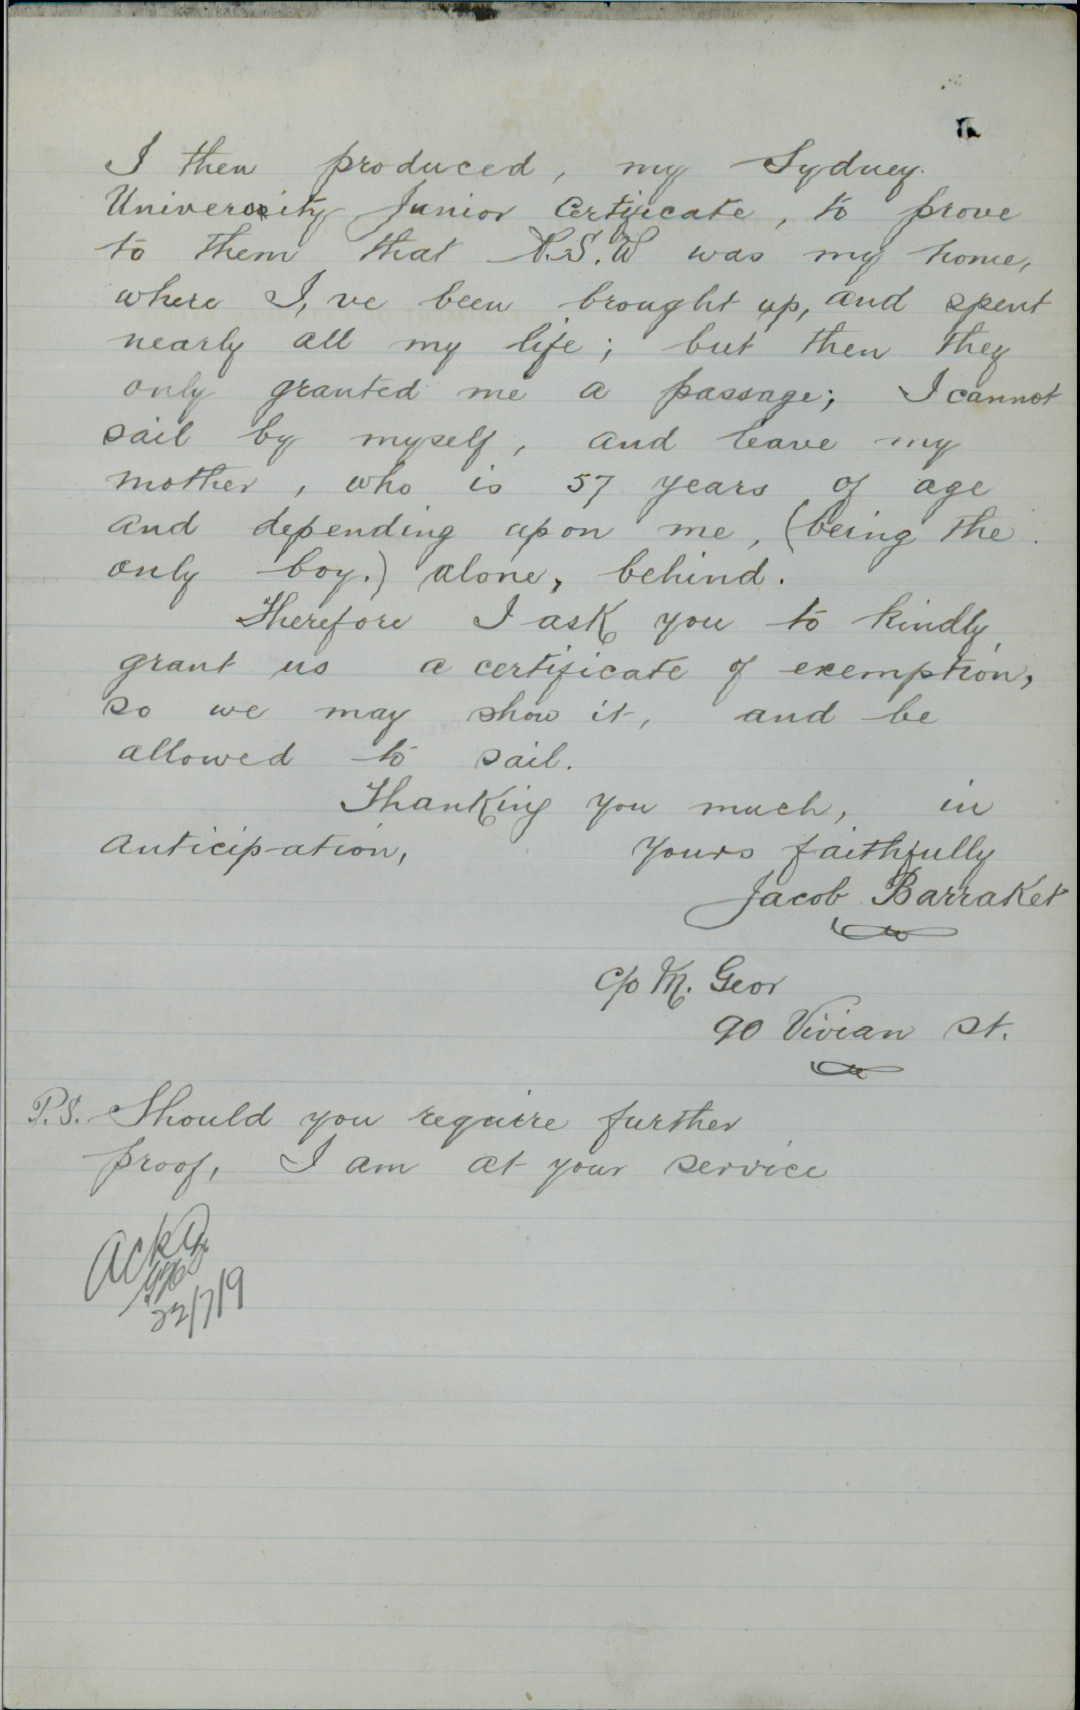 I then produced, my Sydney
University Junior Certificate, to prove
to them that N.S.W was my home,
where I,ve been brought up, and spent
nearly all my life; but then they
only granted me a passage; I cannot
sail by myself, and leave my
mother, who is 57 years of age
and depending upon me, (being the
only boy.) alone, behind.
Therefore I ask you to kindly
grant us a certificate of exemption,
so we may show it, and be
allowed to sail.
Thanking you much, in
anticipation,
Yours faithfully
Jacob Barraket
c/o M. Geor
90 Vivian St.
P.S. Should you require further
proof, I am at your service
22/7/9